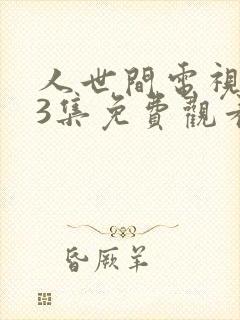 人世間電視
3集免費觀看
昏厥羊